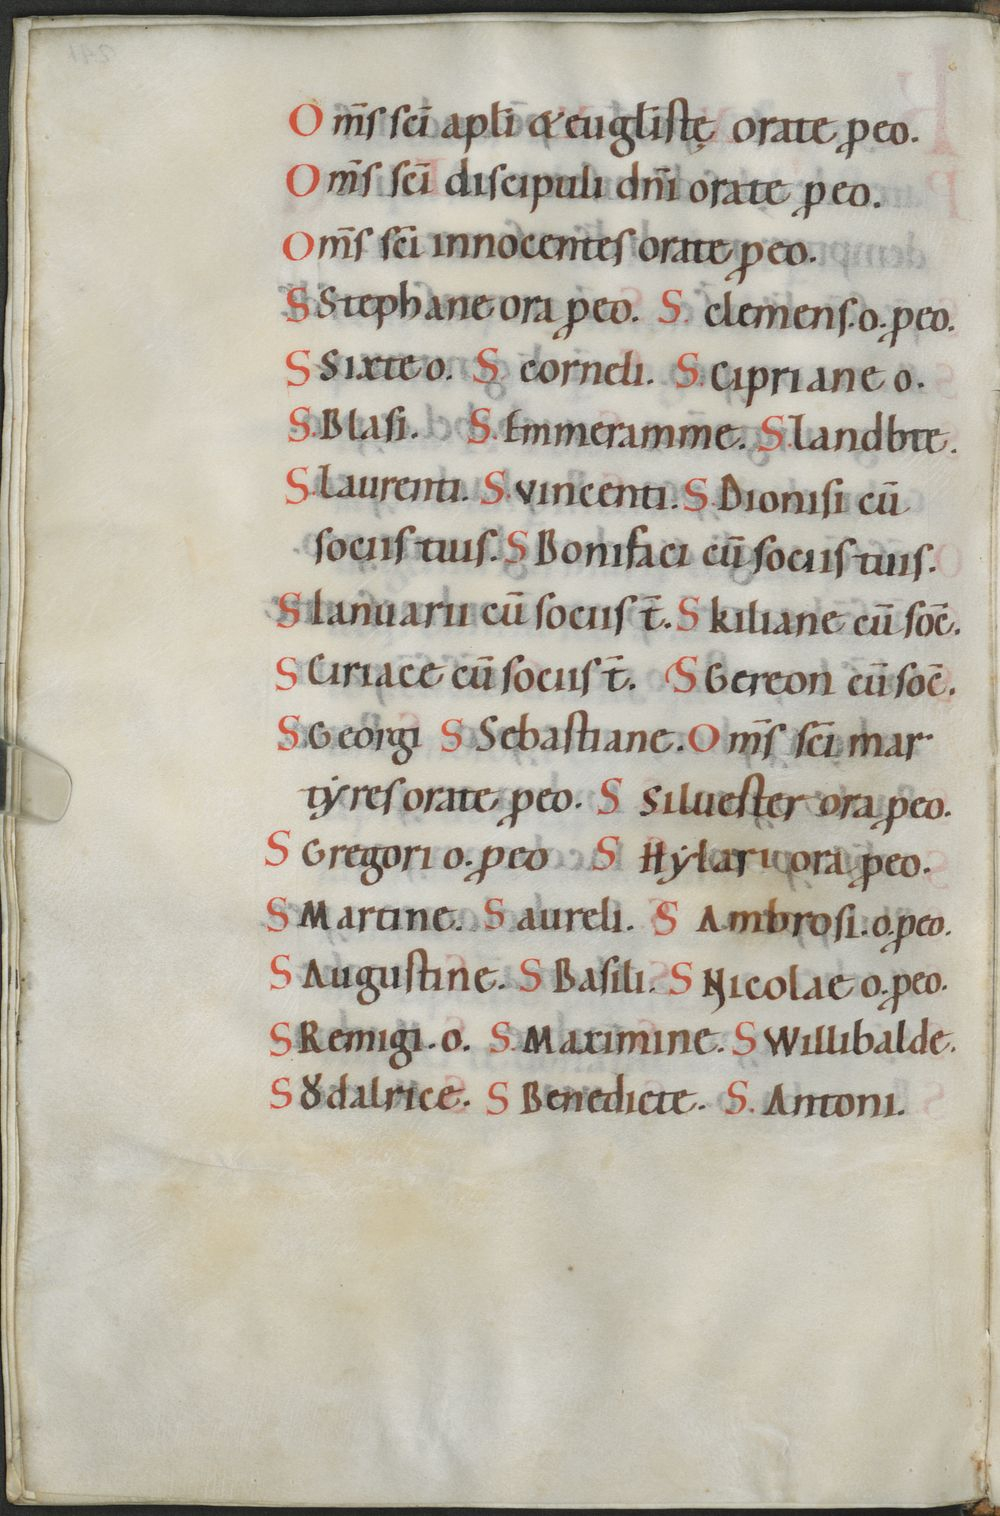 Om̄s sc̄i apl̄i & eugl̄istę orate ꝓ eo.
Om̄s sc̄i discipuli dn̄i orate ꝓ eo.
Om̄s sc̄i innocentes orate ꝓ eo.
S Stephane ora ꝓ eo. S. clemens. o. ꝓ eo.
S Sixte o. S corneli. S. Cipriane o.
S. Blasi. S. Emmeramme. S. landbte.
S. laurenti. S. vincenti. S. Dionisi cū
sociis tuis. S Bonifaci cū sociis tuis.
S Ianuarii cū sociis t̄. S kiliane cū soc̄.
S Ciriace cū sociis t̄. S Gereon cū soc̄.
S. Georgi S Sebastiane. Om̄s sc̄i mar
tẏres orate ꝓ eo. S Siluester ora ꝓ eo.
S Gregori o. ꝓ eo S Hẏlari ora ꝓ eo.
S Martine. S aureli. S Ambrosi. o. ꝓ eo.
S Augustine. S Basili. S Nicolae o. ꝓ eo.
S Remigi. o. S. Maximine. S Willibalde.
S Ȣdalrice. S Benedicte. S. Antoni.